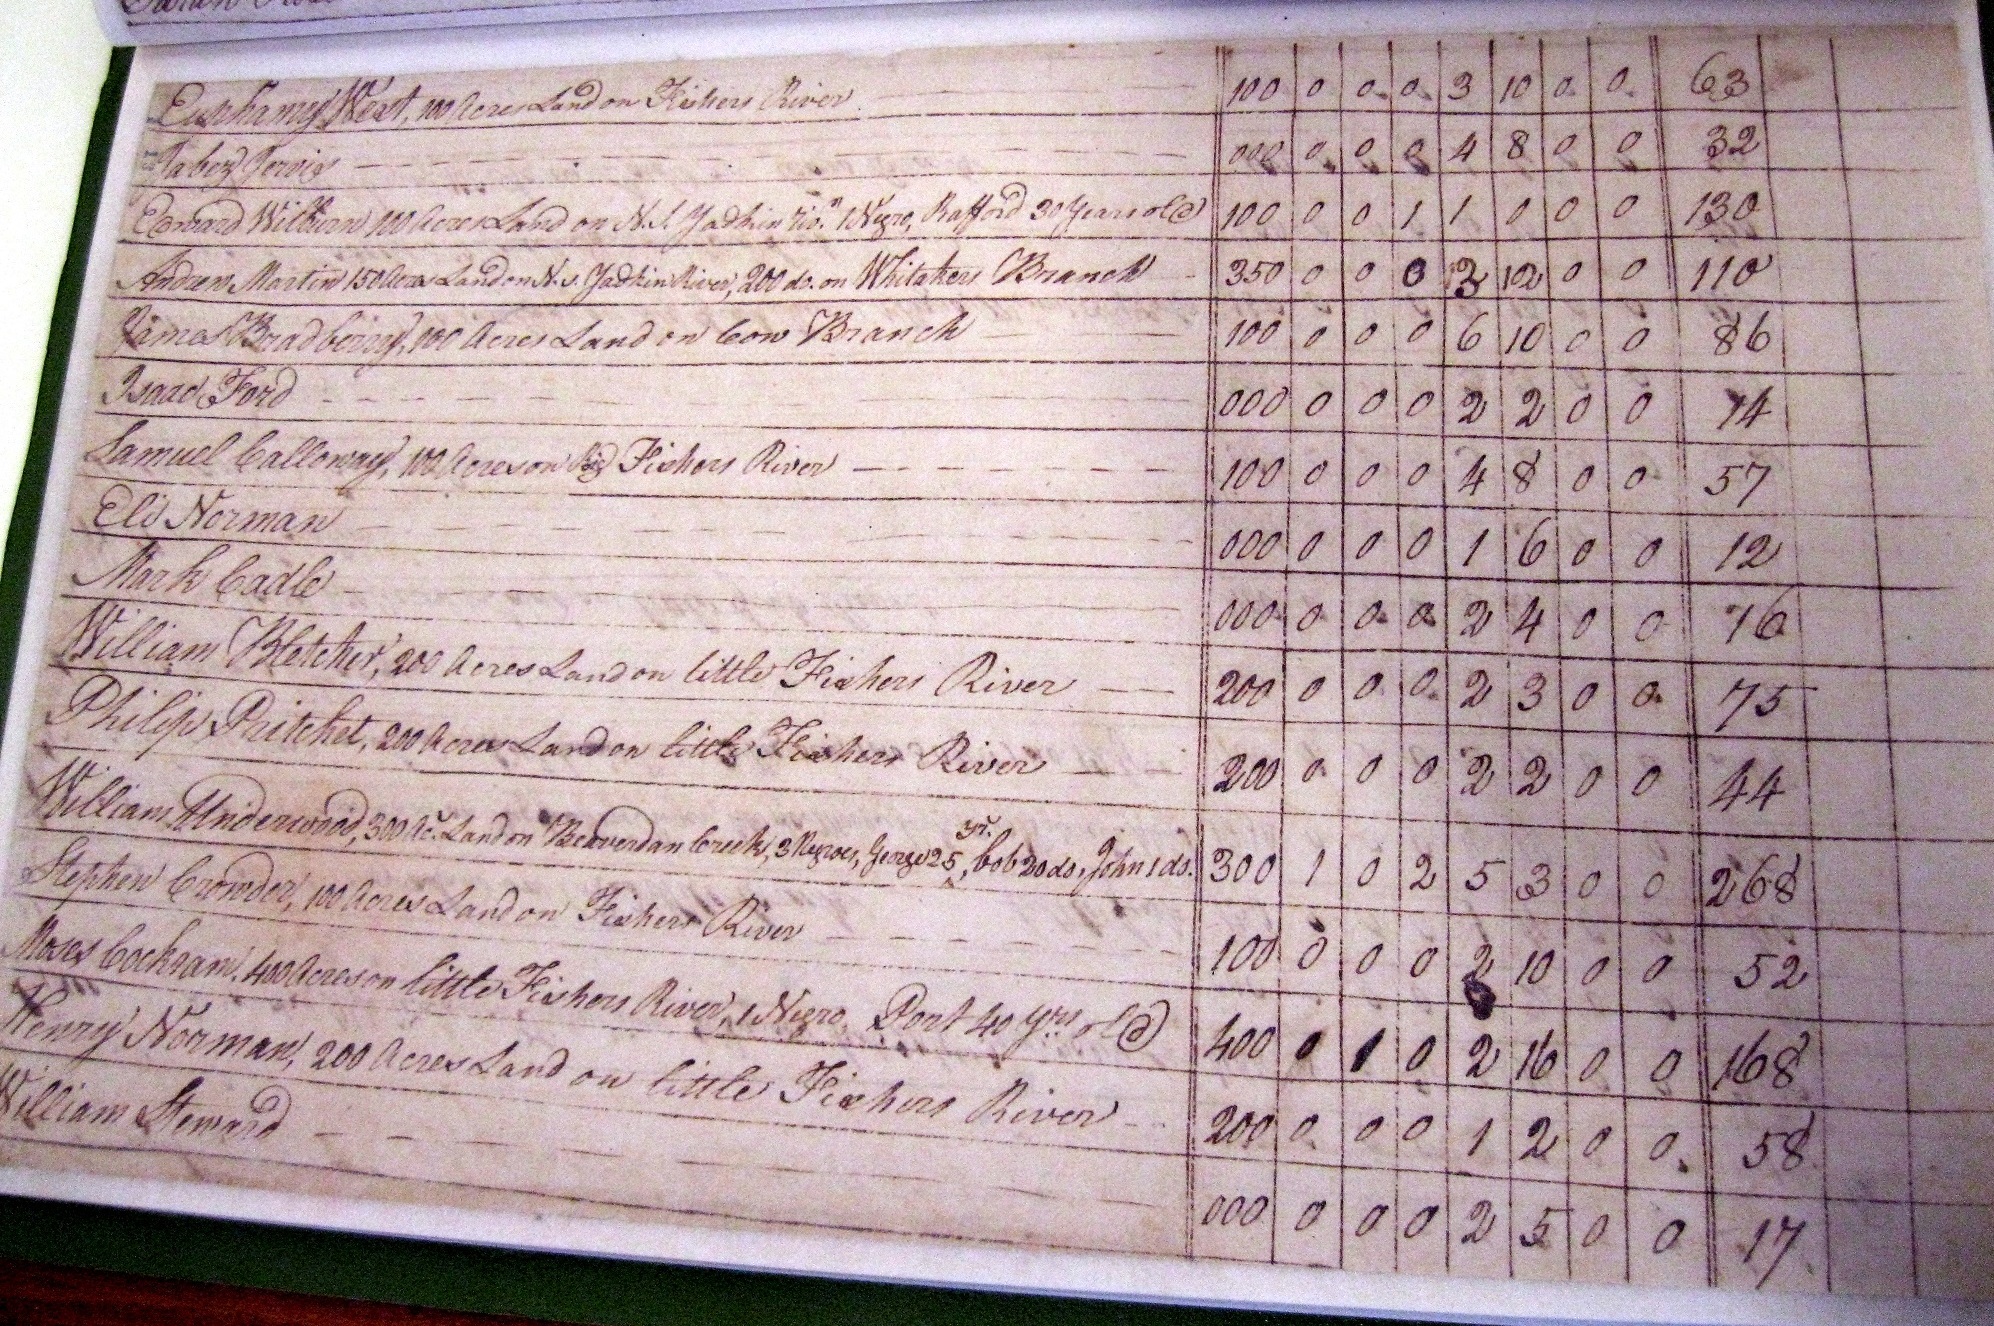 Euphamy West, 100 Acres Land on Fishers River 100 0 0 0 3 10 0 0 63
Jabez Jervis 000 0 0 0 4 8 0 0 32
Edward Wilburn 100 Acres Land on N. S. Yadkin riv.r 1 Negro, Rafford 30 Years old 100 0 0 1 1 0 0 0 130
Andrew Martin 150 Acres Land on N. S. Yadkin River, 200 do. on Whitakers Branch 350 0 0 0 3 12 0 0 110
James Bradberry, 100 Acres Land on Cow Branch 100 0 0 0 6 10 0 0 86
Isaac Ford 000 0 0 0 2 2 0 0 14
Samuel Calloway, 100 Acres on Big Fishers River 100 0 0 0 4 8 0 0 57
Eli Norman 000 0 0 0 1 6 0 0 12
Mark Cadle 000 0 0 0 2 4 0 0 76
William Bletcher, 200 Acres Land on little Fishers River 200 0 0 0 2 3 0 0 75
Philip Pritchet, 200 Acres Land on little Fishers River 200 0 0 0 2 2 0 0 44
William Underwood, 300 Ac. Land on Beaverdam Creek, 3 Negroes, George 25 yr., Bob 20 do, John 1 do. 300 1 0 2 5 3 0 0 268
Stephen Crowder, 100 Acres Land on Fishers River 100 0 0 0 2 10 0 0 52
Moses Cockram, 400 Acres on little Fishers River, 1 Negro, Port 40 yrs old 400 0 1 0 2 16 0 0 168
Henry Norman, 200 Acres Land on little Fishers River 200 0 0 0 1 2 0 0 58
William Steward 000 0 0 0 2 5 0 0 17